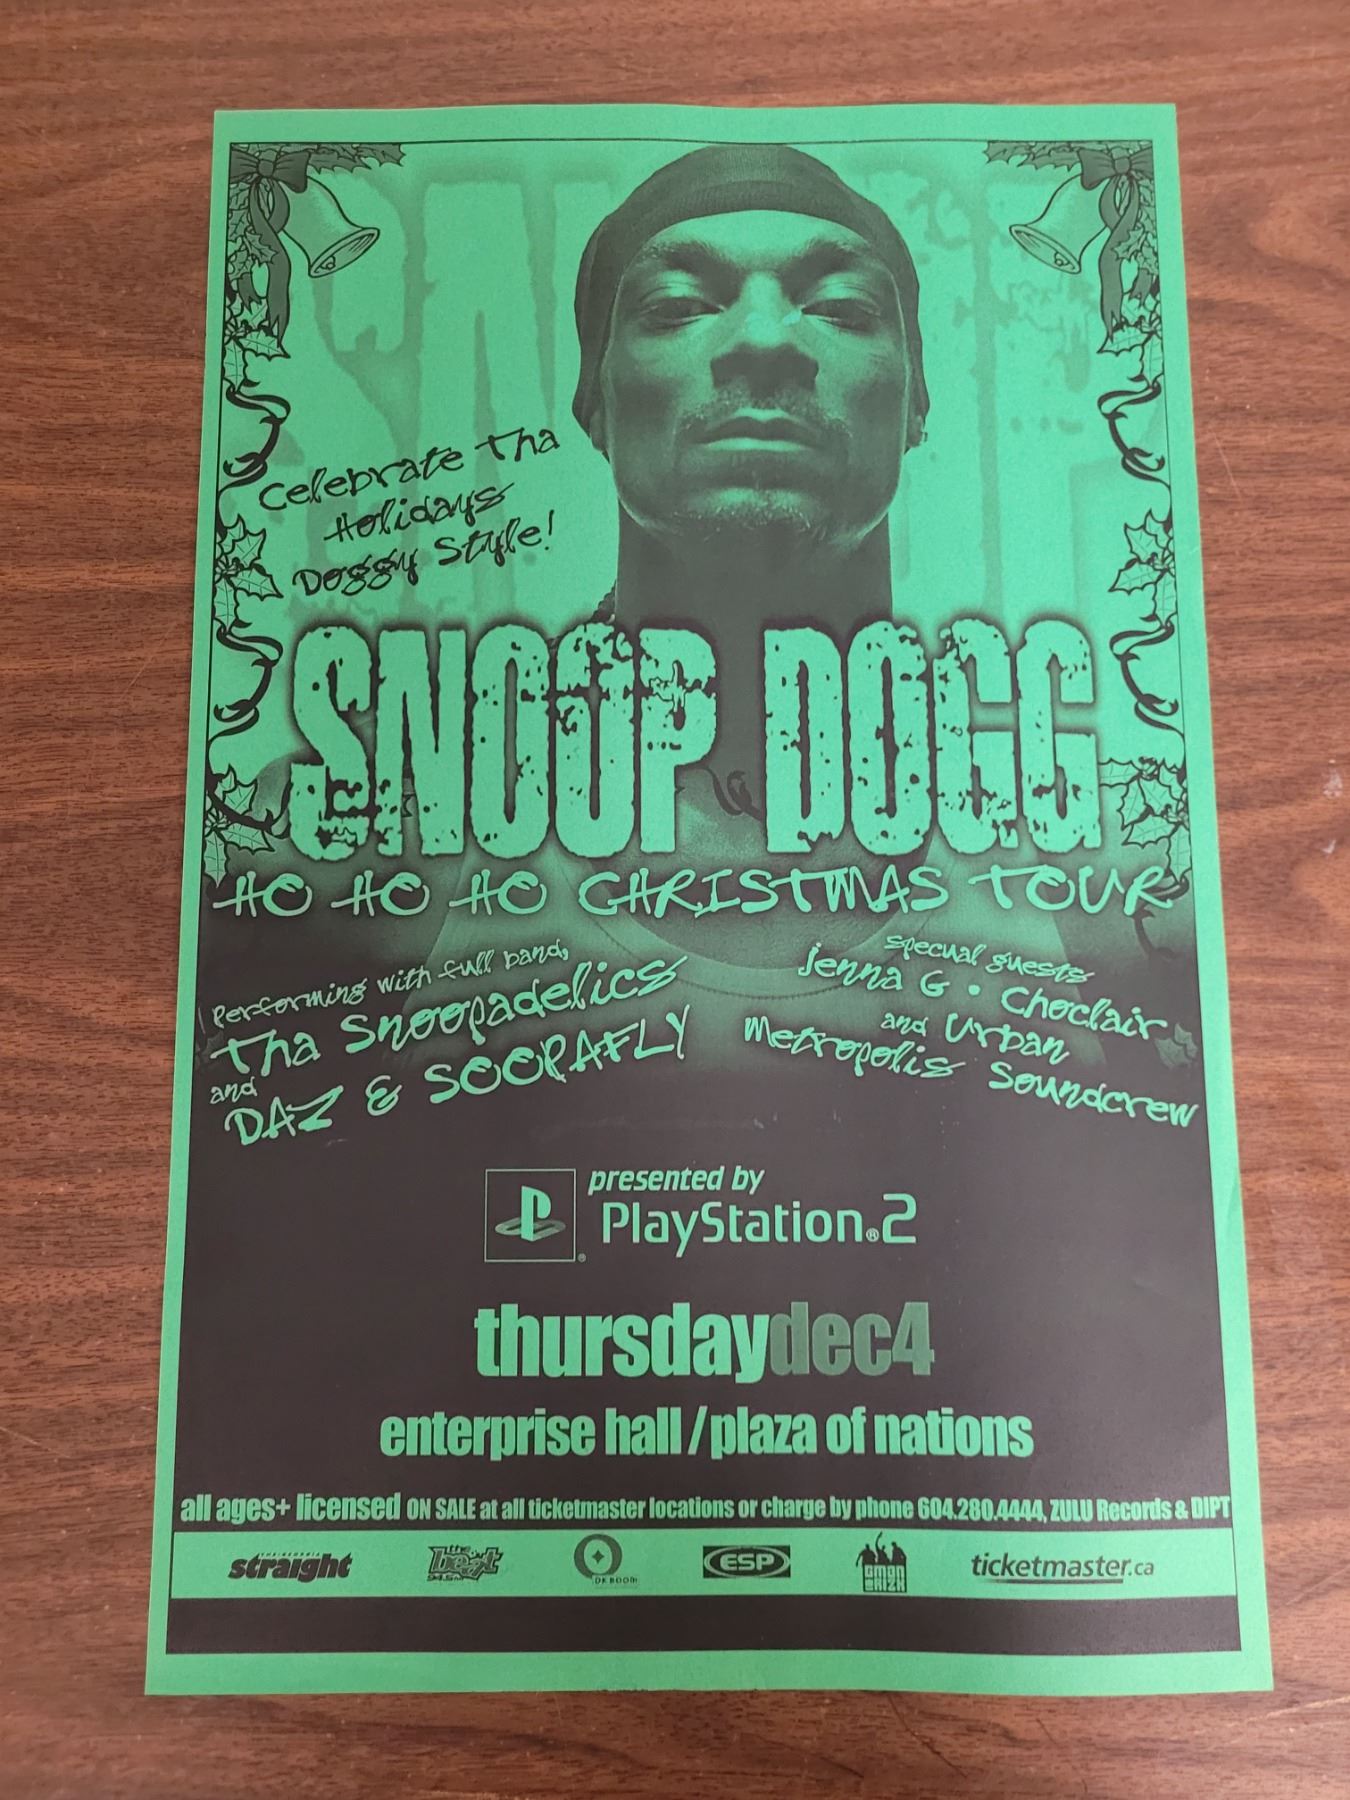 SNOOP
Celebrate Tha
Holidays
Doggy Style!
SNOOP DOGG
HO HO HO CHRISTMAS TOUR
Performing with full band,
Tha Snoopadelics
and
DAZ & SOOPAFLY
special guests
Jenna G • Choclair
and Urban
Metropolis Soundcrew
presented by
PlayStation®2
thursdaydec4
enterprise hall/plaza of nations
all ages+ licensed ON SALE at all ticketmaster locations or charge by phone 604.280.4444, ZULU Records & DIPT
THE GEORGIA
straight
the beat
94.5 FM
ESP
ticketmaster.ca